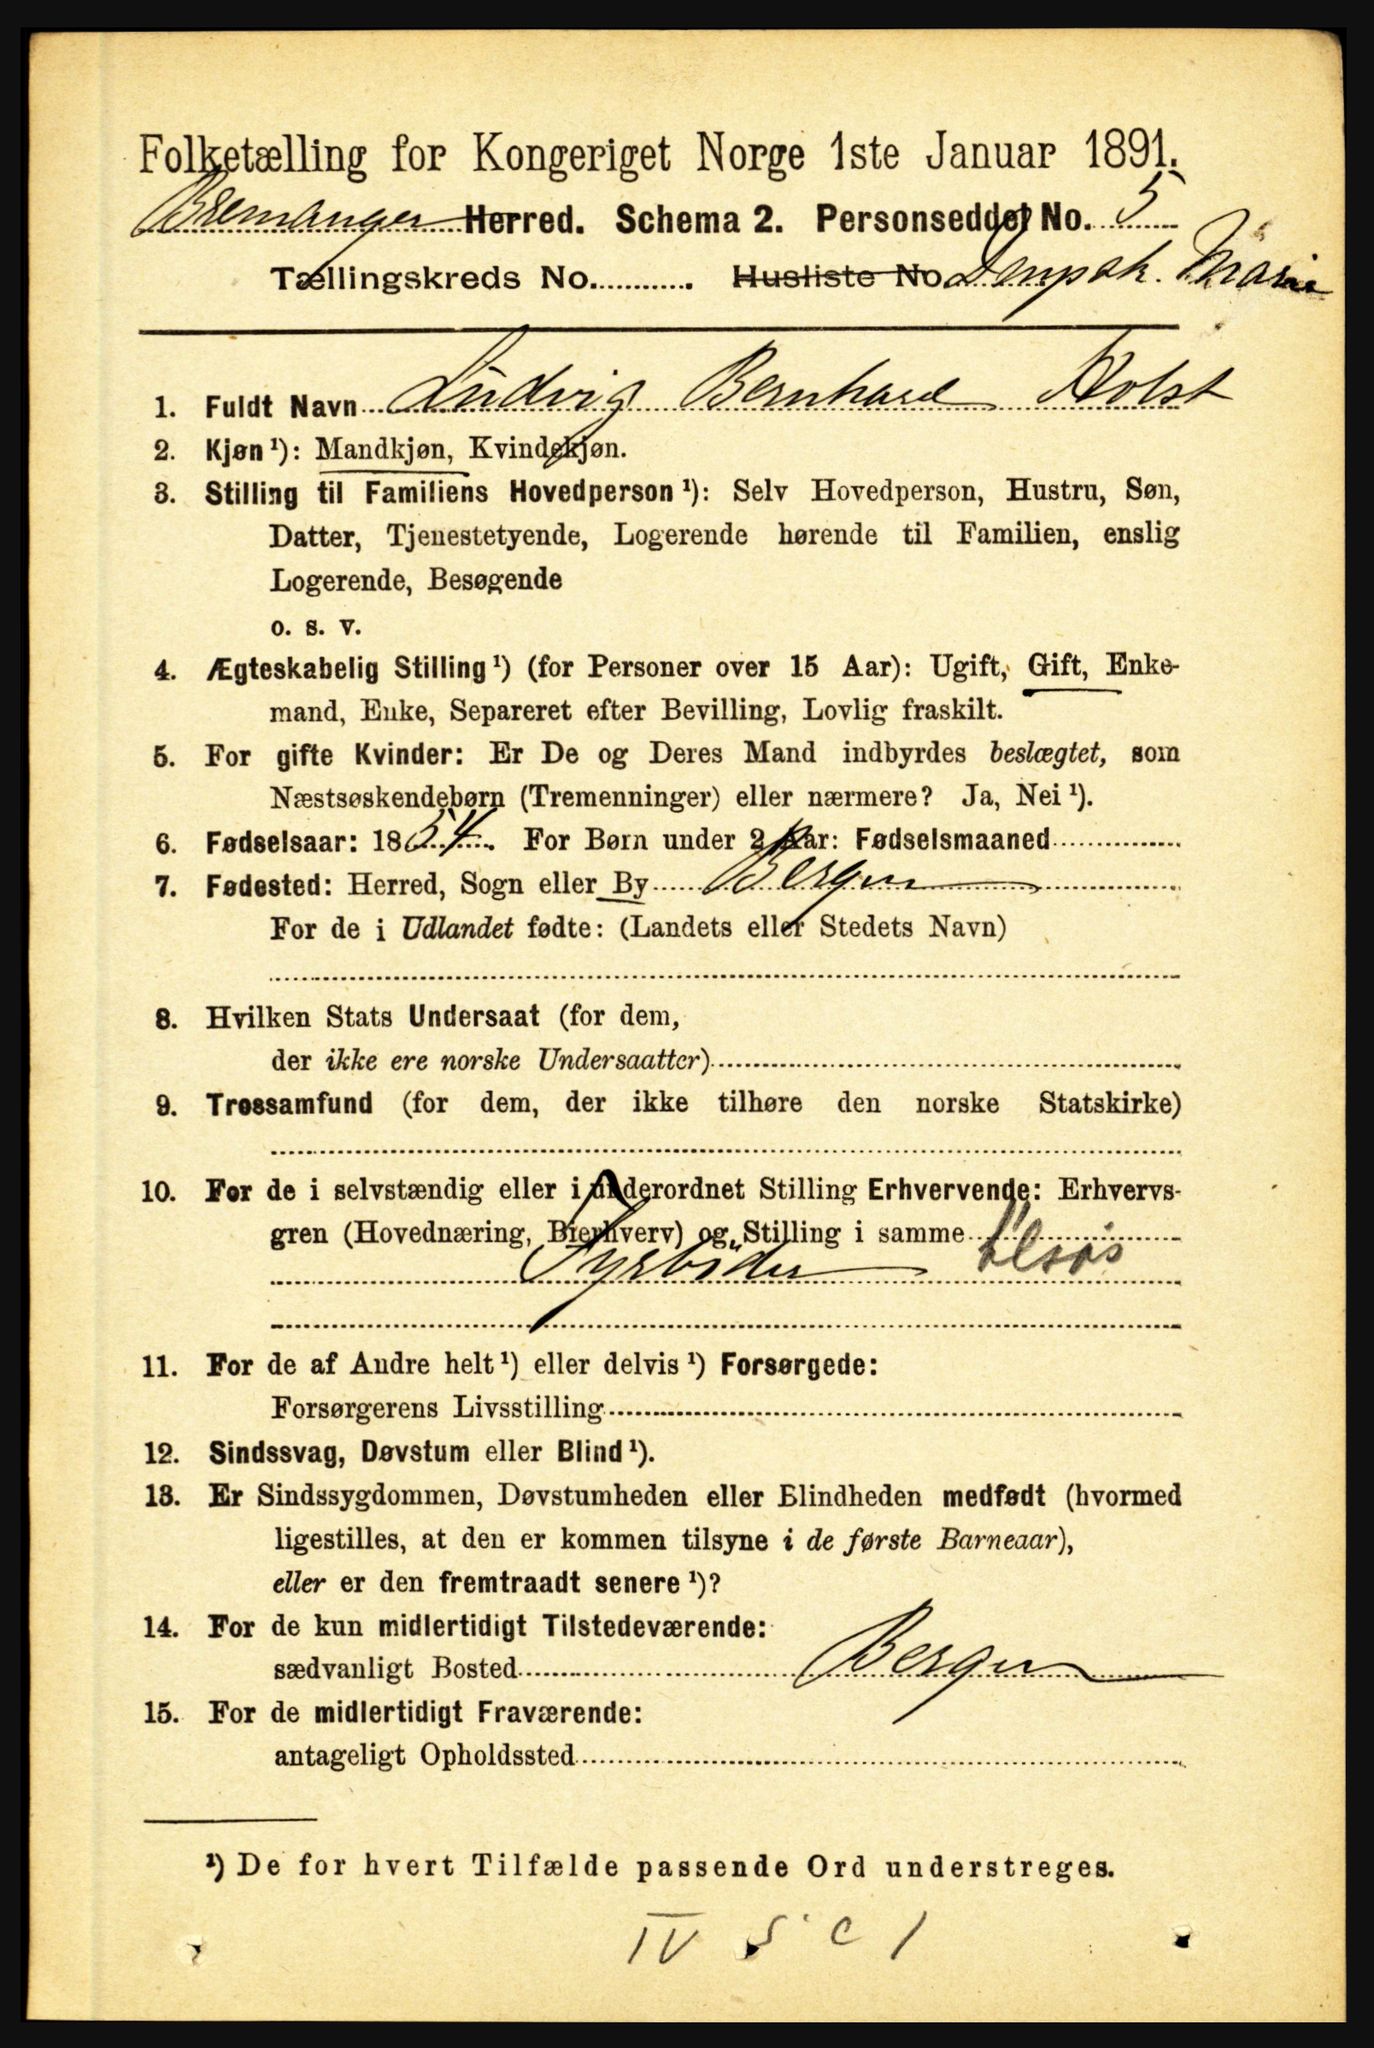 Folketælling for Kongeriget Norge 1ste Januar 1891.
Bremanger Herred. Schema 2. Personseddel No. 5
Tællingskreds No. ........... Husliste No Dampsk. Marie
1. Fuldt Navn Ludvig Bernhard Holst
2. Kjøn ¹): Mandkjøn, Kvindekjøn.
3. Stilling til Familiens Hovedperson ¹): Selv Hovedperson, Hustru, Søn,
Datter, Tjenestetyende, Logerende hørende til Familien, enslig
Logerende, Besøgende
o. s. v.
4. Ægteskabelig Stilling ¹) (for Personer over 15 Aar): Ugift, Gift, Enke-
mand, Enke, Separeret efter Bevilling, Lovlig fraskilt.
5. For gifte Kvinder: Er De og Deres Mand indbyrdes beslægtet, som
Næstsøskendebørn (Tremenninger) eller nærmere? Ja, Nei ¹).
6. Fødselsaar: 1854. For Børn under 2 Aar: Fødselsmaaned
7. Fødested: Herred, Sogn eller By Bergen
For de i Udlandet fødte: (Landets eller Stedets Navn)
8. Hvilken Stats Undersaat (for dem,
der ikke ere norske Undersaatter)
9. Trossamfund (for dem, der ikke tilhøre den norske Statskirke)
10. For de i selvstændig eller i underordnet Stilling Erhvervende: Erhvervs-
gren (Hovednæring, Bierhverv) og Stilling i samme
Fyrbøder tilsøs
11. For de af Andre helt ¹) eller delvis ¹) Forsørgede:
Forsørgerens Livsstilling
12. Sindssvag, Døvstum eller Blind ¹).
13. Er Sindssygdommen, Døvstumheden eller Blindheden medfødt (hvormed
ligestilles, at den er kommen tilsyne i de første Barneaar),
eller er den fremtraadt senere ¹)?
14. For de kun midlertidigt Tilstedeværende:
sædvanligt Bosted Bergen
15. For de midlertidigt Fraværende:
antageligt Opholdssted
¹) De for hvert Tilfælde passende Ord understreges.
IV 5 c 1